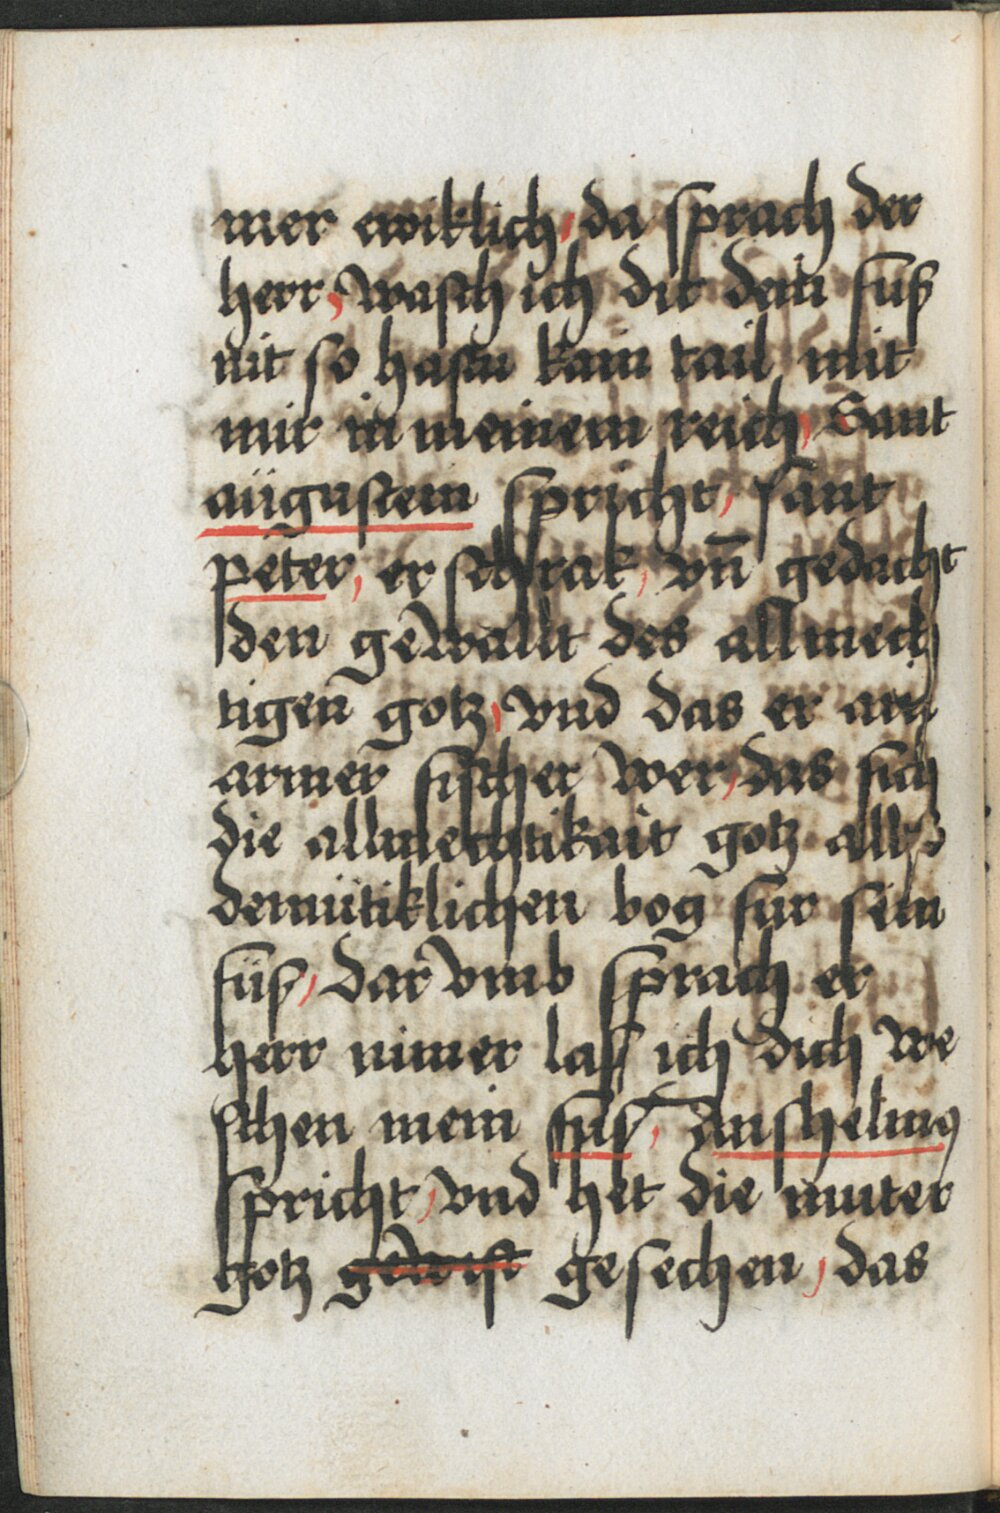 mer ewiklich / da sprach der
herr / wasch ich dir dein füß
nit so hastu kain tail mit
mir in meinem reich / Sant
aügustein spricht / sant
peter / er schrak / vn̄ gedacht
den gewallt des allmech
tigen gotz / vnd das er ain
armer fischer wer / das sich
die allmechtikait gotz allso
demütiklichen bog für sein
füß / dar vmb sprach er
herr nimer lass ich dich we
schen mein füß / Anshelmus
spricht / vnd het die muter
gotz gewist gesechen / das